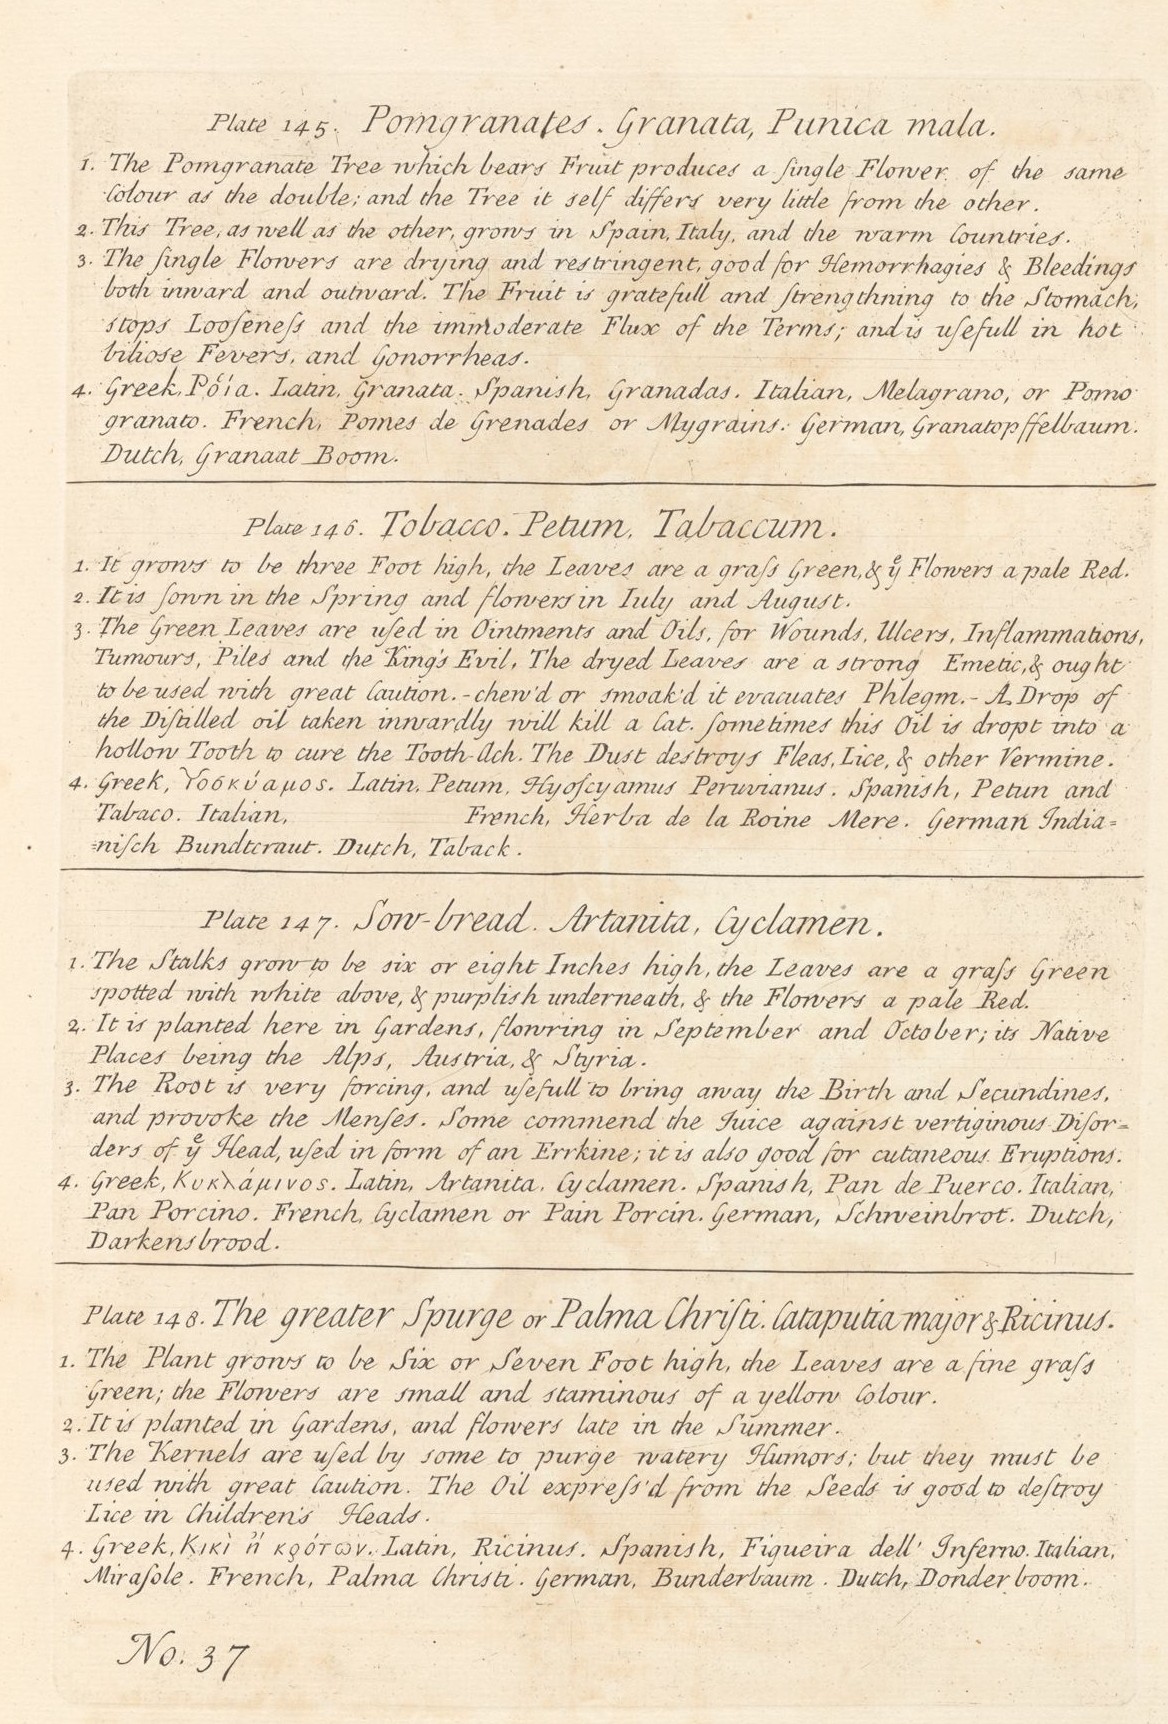 Plate 145. Pomgranates. Granata, Punica mala.
1. The Pomgranate Tree which bears Fruit produces a ſingle Flower of the same
Colour as the double; and the Tree it self differs very little from the other.
2. This Tree, as well as the other, grows in Spain, Italy, and the warm Countries.
3. The ſingle Flowers are drying and restringent, good for Hemorrhagies & Bleedings
both inward and outward. The Fruit is gratefull and ſtrengthning to the Stomach,
stops Looſeneſs and the immoderate Flux of the Terms; and is uſefull in hot
biliose Fevers, and Gonorrheas.
4. Greek, Ῥόία. Latin, Granata. Spanish, Granadas. Italian, Melagrano, or Pomo
granato. French, Pomes de Grenades or Mygrains. German, Granatopffelbaum.
Dutch, Granaat Boom.
Plate 146. Tobacco. Petum, Tabaccum.
1. It grows to be three Foot high, the Leaves are a graſs Green, & yͤ Flowers a pale Red.
2. It is ſown in the Spring and flowers in Iuly and August.
3. The Green Leaves are uſed in Ointments and Oils, for Wounds, Ulcers, Inflammations,
Tumours, Piles and the King's Evil, The dryed Leaves are a strong Emetic, & ought
to be used with great Caution.-chew'd or smoak'd it evacuates Phlegm.- A Drop of
the Diſtilled oil taken inwardly will kill a Cat. ſometimes this Oil is dropt into a
hollow Tooth to cure the Tooth-Ach. The Dust destroys Fleas, Lice, & other Vermine.
4. Greek, Ὑοσκύαμος. Latin, Petum, Hyoſcyamus Peruvianus. Spanish, Petun and
Tabaco. Italian, French, Herba de la Roine Mere. German India=
=niſch Bundtcraut. Dutch, Taback.
Plate 147. Sow-bread. Artanita, Cyclamen.
1. The Stalks grow to be six or eight Inches high, the Leaves are a graſs Green
spotted with white above, & purplish underneath, & the Flowers a pale Red.
2. It is planted here in Gardens, flowring in September and October; its Native
Places being the Alps, Austria, & Styria.
3. The Root is very forcing, and uſefull to bring away the Birth and Secundines,
and provoke the Menſes. Some commend the Juice against vertiginous Diſor=
ders of yͤ Head, uſed in form of an Errhine; it is also good for cutaneous Eruptions.
4. Greek, Κυκλάμινος. Latin, Artanita, Cyclamen. Spanish, Pan de Puerco. Italian,
Pan Porcino. French, Cyclamen or Pain Porcin. German, Schweinbrot. Dutch,
Darkensbrood.
Plate 148. The greater Spurge or Palma Chriſti. Cataputia major & Ricinus.
1. The Plant grows to be Six or Seven Foot high, the Leaves are a fine graſs
Green; the Flowers are small and staminous of a yellow Colour.
2. It is planted in Gardens, and flowers late in the Summer.
3. The Kernels are uſed by some to purge watery Humors; but they must be
used with great Caution. The Oil expreſs'd from the Seeds is good to deſtroy
Lice in Children's Heads.
4. Greek, Κικὶ ἢ κρότων. Latin, Ricinus. Spanish, Figueira dell' Inferno. Italian,
Miraſole. French, Palma Christi. German, Bunderbaum. Dutch, Donderboom.
No: 37